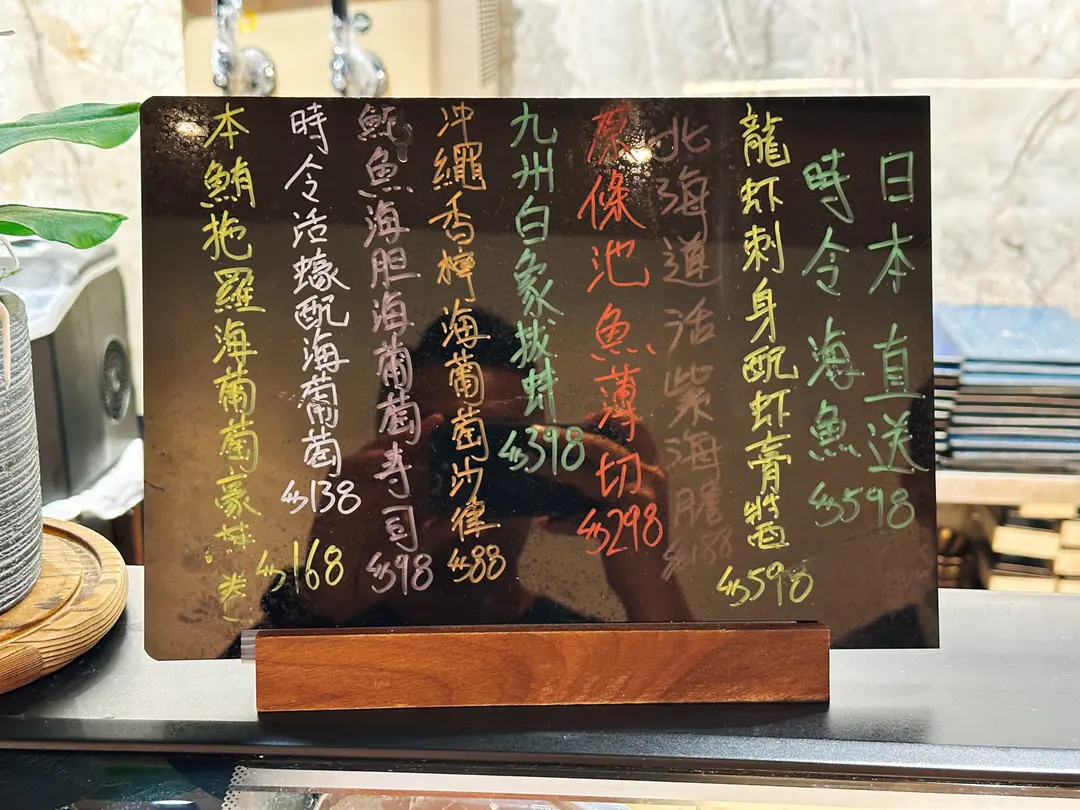 日本直送
時令海魚 $598
龍虾刺身配虾膏醬 $598
北海道活紫海膽 $188
原條池魚薄切 $298
九州白象拔蚌 $398
冲繩香檸海葡萄沙律 $88
魷魚海胆海葡萄寿司 $98
時令活蠔配海葡萄 $138
本鮪拖羅海葡萄豪華卷 $168